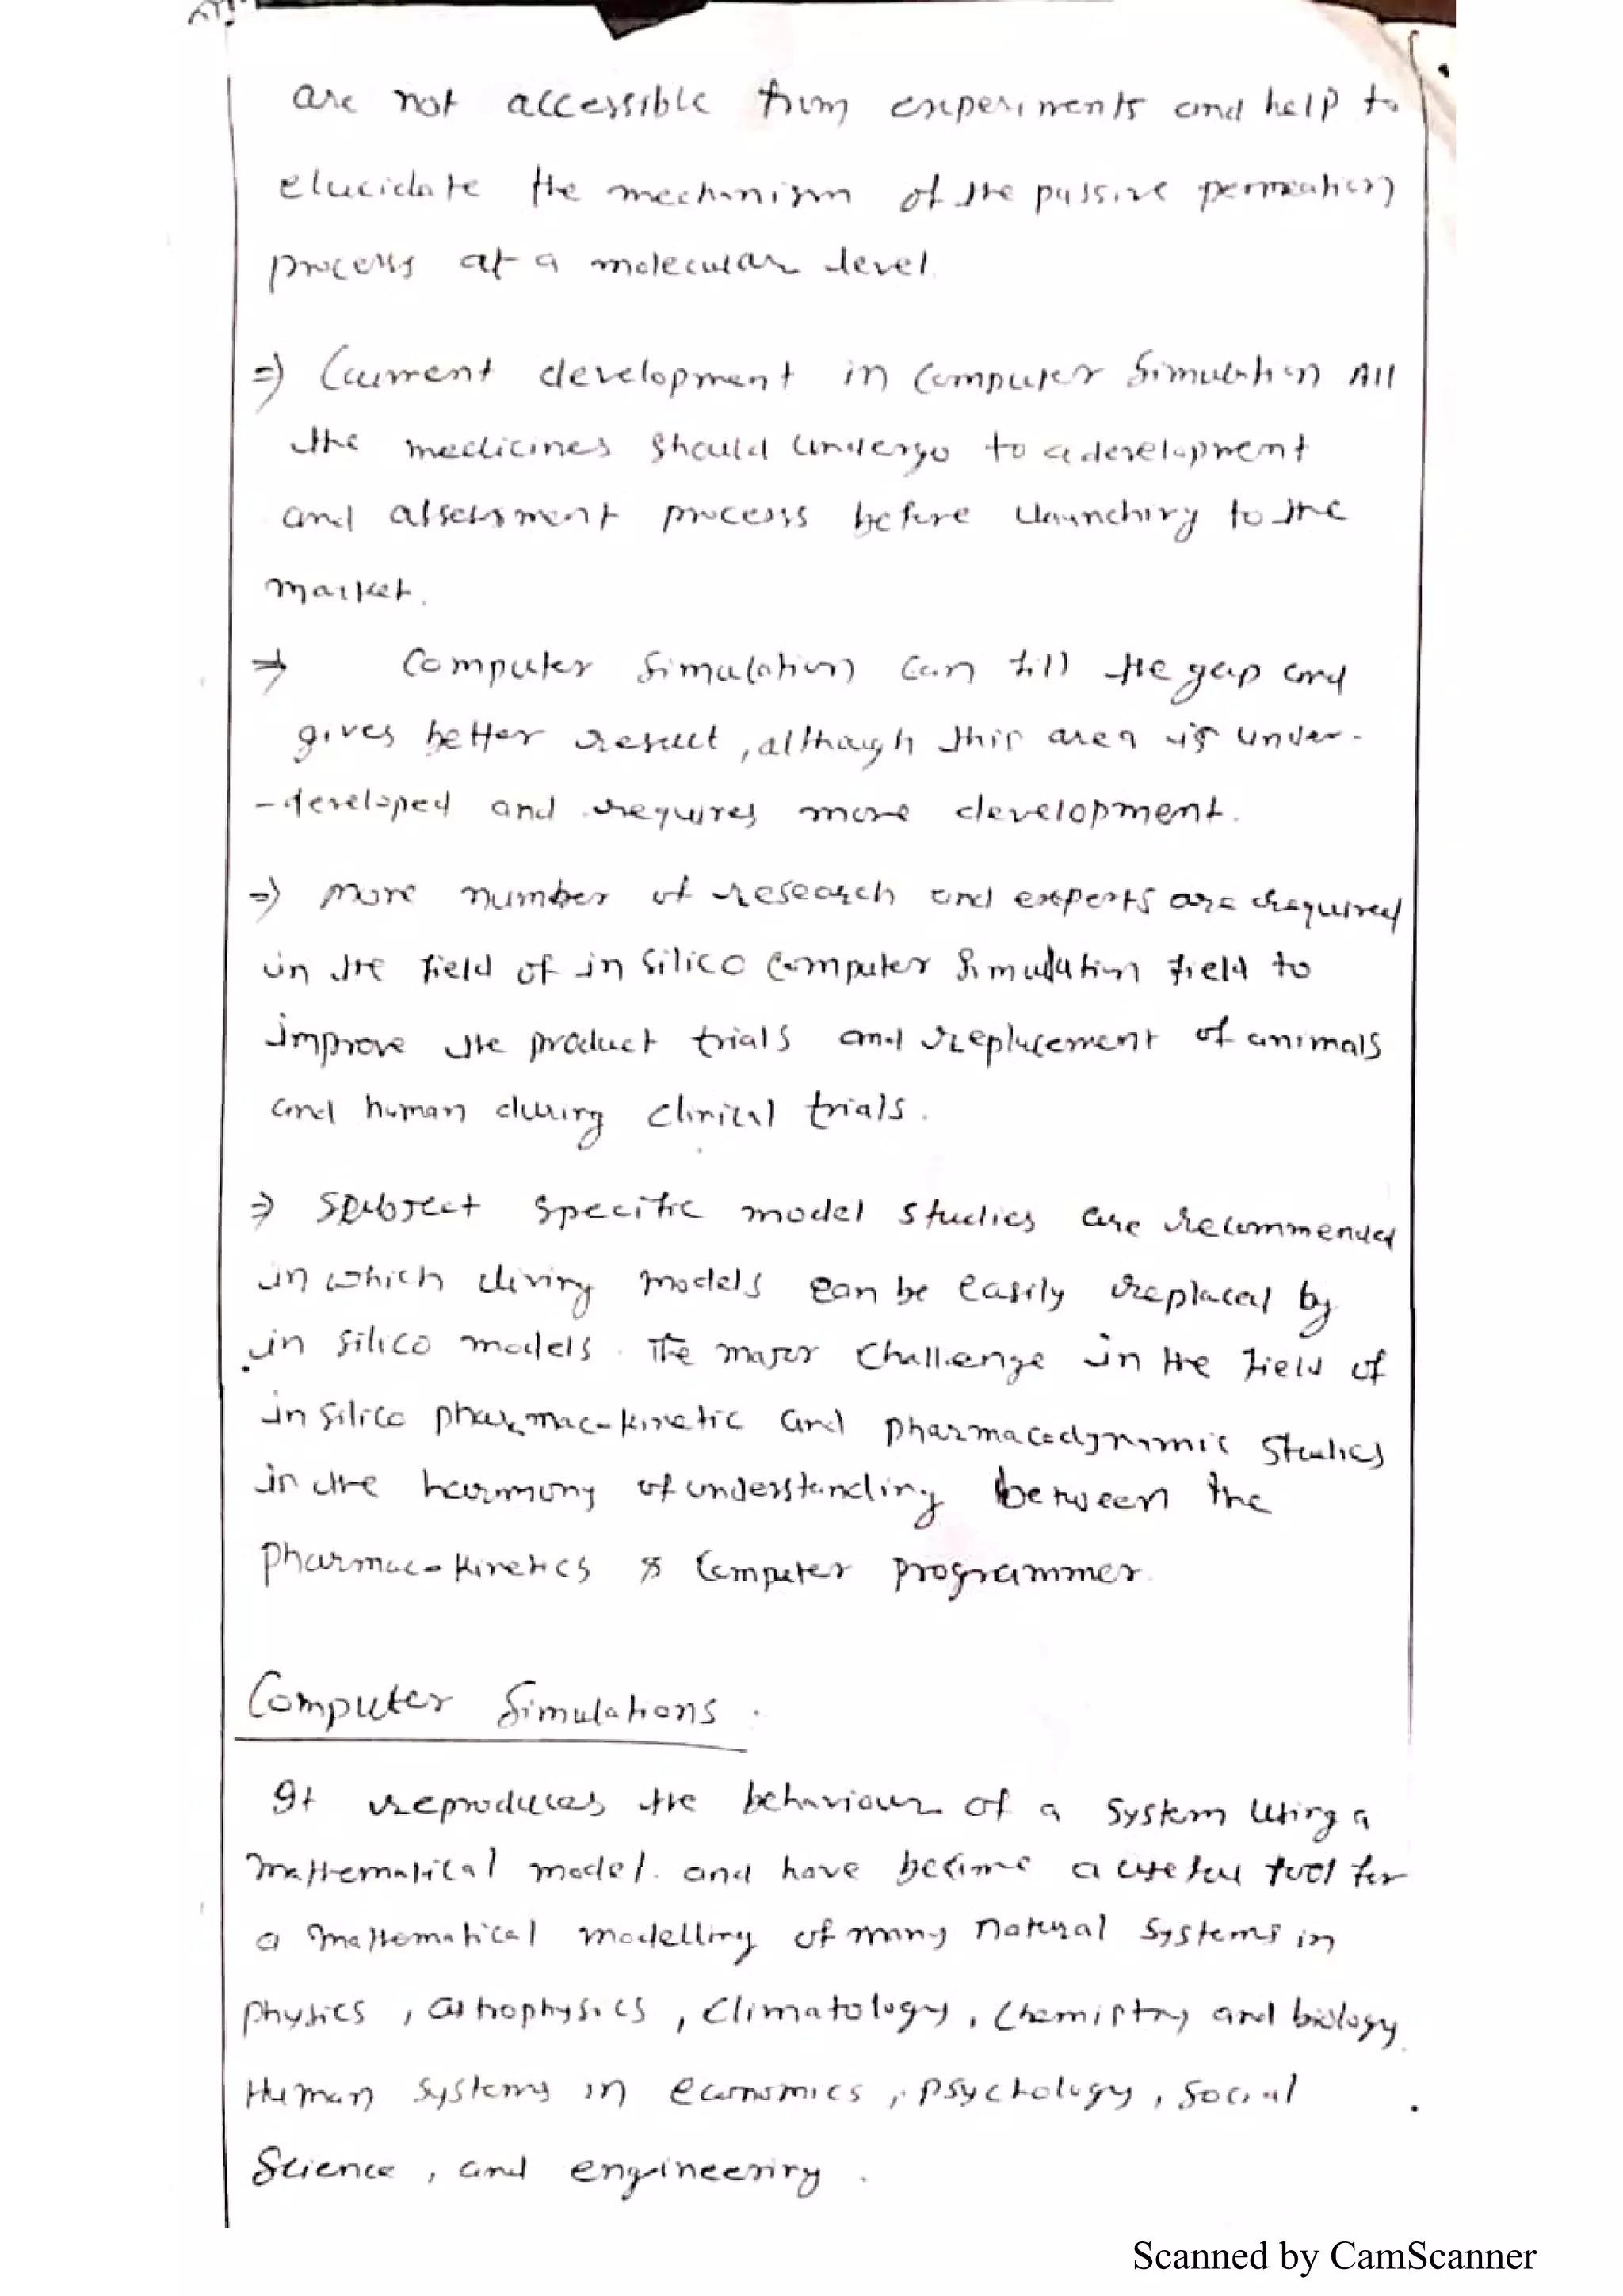 are not accessible from experiments and help to
elucidate the mechanism of the passive permeation
process at a molecular level.
=> Current development in Computer Simulation All
the medicines should undergo to a development
and assessment process before launching to the
market.
=> Computer Simulation can fill the gap and
gives better result, although this area is under-
-developed and requires more development.
=> more number of research and experts are required
in the field of in silico Computer Simulation field to
improve the product trials and replacement of animals
and human during clinical trials.
=> Subject specific model studies are recommended
in which living models can be easily replaced by
in silico models. The major challenge in the field of
in silico pharmaco-kinetic and pharmacodynamic studies
in the harmony of understanding between the
pharmaco-kinetics & Computer programmer.
Computer Simulations.
It reproduces the behaviour of a system using a
mathematical model. and have become a useful tool for
a mathematical modelling of many natural systems in
physics, astrophysics, climatology, chemistry and biology.
Human systems in economics, psychology, social
Science, and engineering.
Scanned by CamScanner